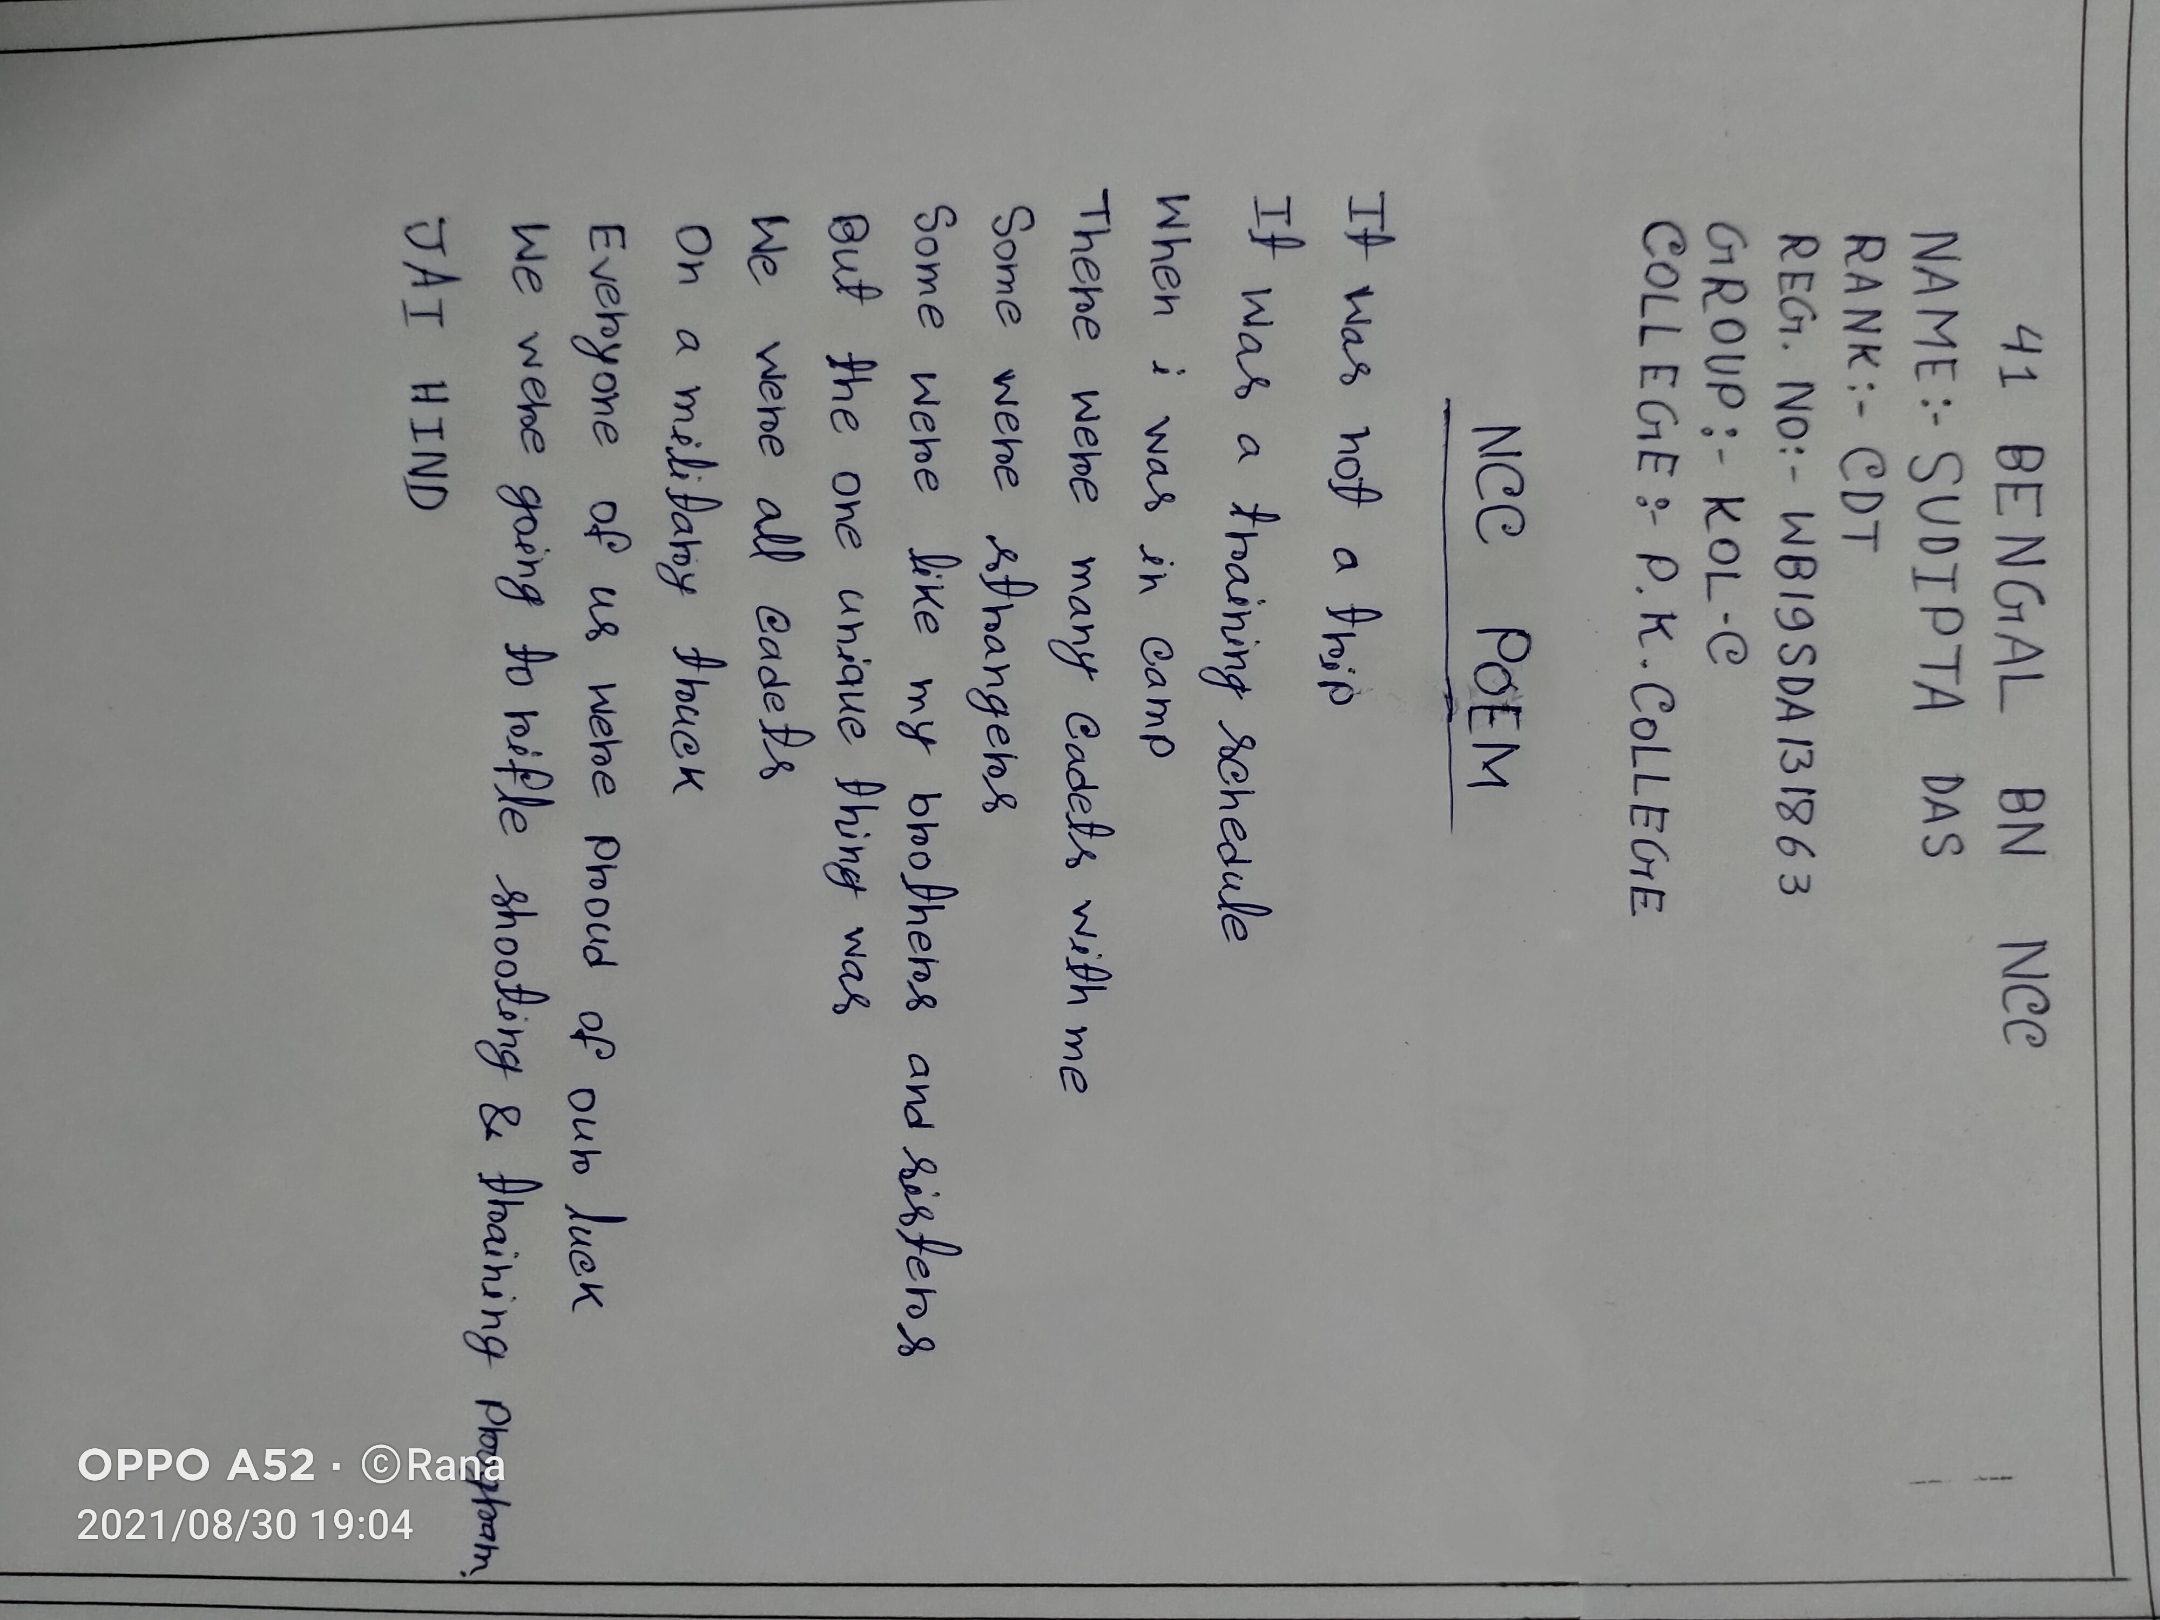 41 BENGAL BN NCC
NAME:- SUDIPTA DAS
RANK:- CDT
REG. NO:- WB19SDA131863
GROUP:- KOL-C
COLLEGE:- P.K. COLLEGE
NCC POEM
It was not a trip
It was a training schedule
When i was in camp
There were many cadets with me
Some were strangers
Some were like my brothers and sisters
But the one unique thing was
We were all cadets
On a military truck
Everyone of us were proud of our luck
We were going to rifle shooting & training program.
JAI HIND
OPPO A52 · ©Rana
2021/08/30 19:04